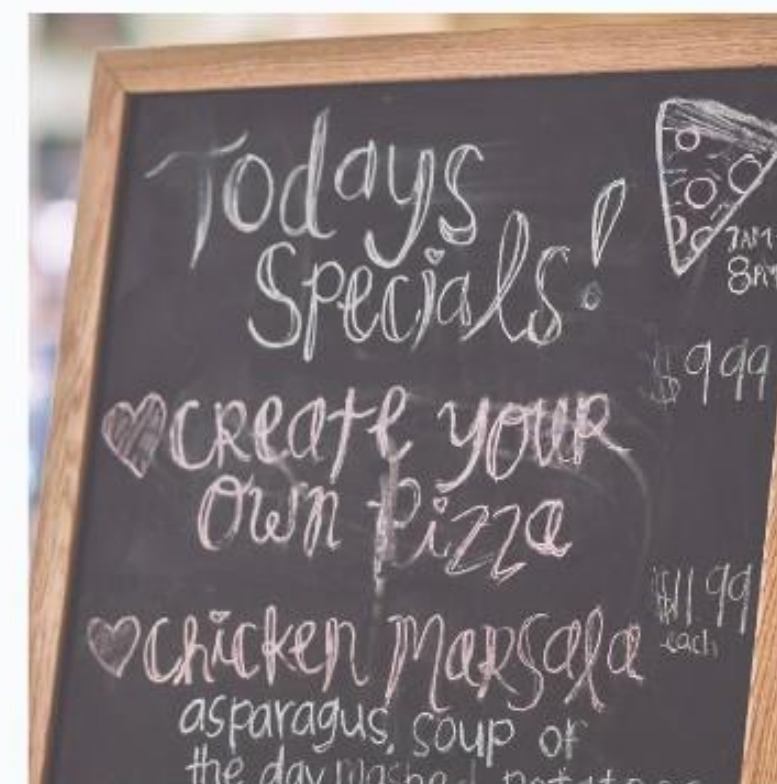 Todays
Specials!
7AM-
8PM
$9.99
Create your
Own Pizza
$11.99
each
Chicken Marsala
asparagus, soup of
the day mashed potatoes